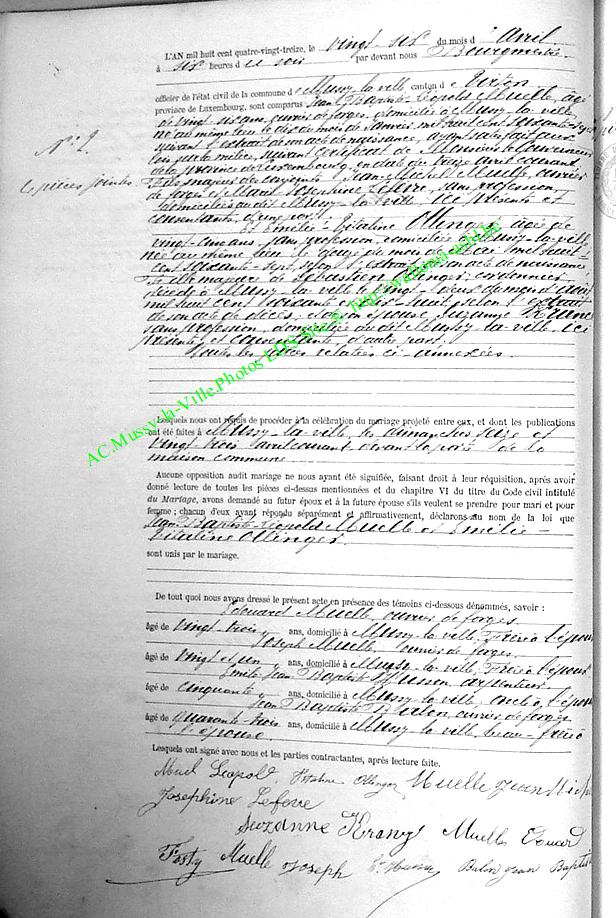 L'AN mil huit cent quatre-vingt-treize, le vingt-six du mois d'Avril
à six heures du soir par devant nous Bourgmestre
officier de l'état civil de la commune de Mussy-la-ville canton de Virton
province de Luxembourg, sont comparus Jean Baptiste Léopold Muelle, âgé
de vingt six ans, ouvrier de forges, domicilié à Mussy-la-ville
né au même lieu le dix du mois de Janvier mil huit cent soixante-sept
N° 2.
suivant l'extrait de son acte de naissance, ayant satisfait aux
lois sur la milice, suivant certificat de Monsieur le Gouverneur
de la province de Luxembourg, en date du treize avril courant,
6 pièces jointes
fils majeur de Jean Michel Muelle, ouvrier
de forges et Marie Josephine Lefevre, sans profession,
domiciliés audit Mussy-la-ville, ici présents et
consentants, d'une part;
Et Emélie-Vitaline Ollinger, âgée de
vingt-cinq ans, sans profession, domiciliée à Mussy-la-ville
née au même lieu le mois de mil huit
cent soixante-sept, selon l'extrait de son acte de naissance
fille majeure de Sébastien Ollinger, cordonnier,
décédé à Mussy-la-ville le vingt-deux du mois d'août
mil huit cent soixante et huit, selon l'extrait
de son acte de décès, et de son épouse, Suzanne Krantz
sans profession, domiciliée audit Mussy-la-ville, ici
présente et consentante, d'autre part.
Toutes les pièces relatées ci-annexées.
AC.Mussy-la-Ville.Photos http://wallonia-asbl.be
Lesquels nous ont requis de procéder à la célébration du mariage projeté entre eux, et dont les publications
ont été faites à Mussy-la-ville, les dimanches seize et
vingt-trois avril courant devant la porte de la
maison commune
Aucune opposition audit mariage ne nous ayant été signifiée, faisant droit à leur réquisition, après avoir
donné lecture de toutes les pièces ci-dessus mentionnées et du chapitre VI du titre du Code civil intitulé
du Mariage, avons demandé au futur époux et à la future épouse s'ils veulent se prendre pour mari et pour
femme ; chacun d'eux ayant répondu séparément et affirmativement, déclarons au nom de la loi que
Jean Baptiste Léopold Muelle et Emélie-
Vitaline Ollinger.
sont unis par le mariage.
De tout quoi nous avons dressé le présent acte en présence des témoins ci-dessous dénommés, savoir :
Edouard Muelle, ouvrier de forges
âgé de vingt-trois ans, domicilié à Mussy-la-ville, frère à l'époux
Joseph Muelle, ouvrier de forges
âgé de vingt et un ans, domicilié à Mussy-la-ville, frère à l'époux
Emile Jean Baptiste Husson, arpenteur
âgé de cinquante ans, domicilié à Mussy-la-ville, oncle à l'époux
Jean Baptiste Balon, ouvrier de forges
âgé de quarante-trois ans, domicilié à Mussy-la-ville, beau-frère à
l'épouse
Lesquels ont signé avec nous et les parties contractantes, après lecture faite.
Muel Leopold Vitaline Ollinger Muelle Jean Mich
Josephine Lefevre
Suzanne Kranz Muelle Edouard
Festy Muelle Joseph E. Husson Balon Jean Baptis